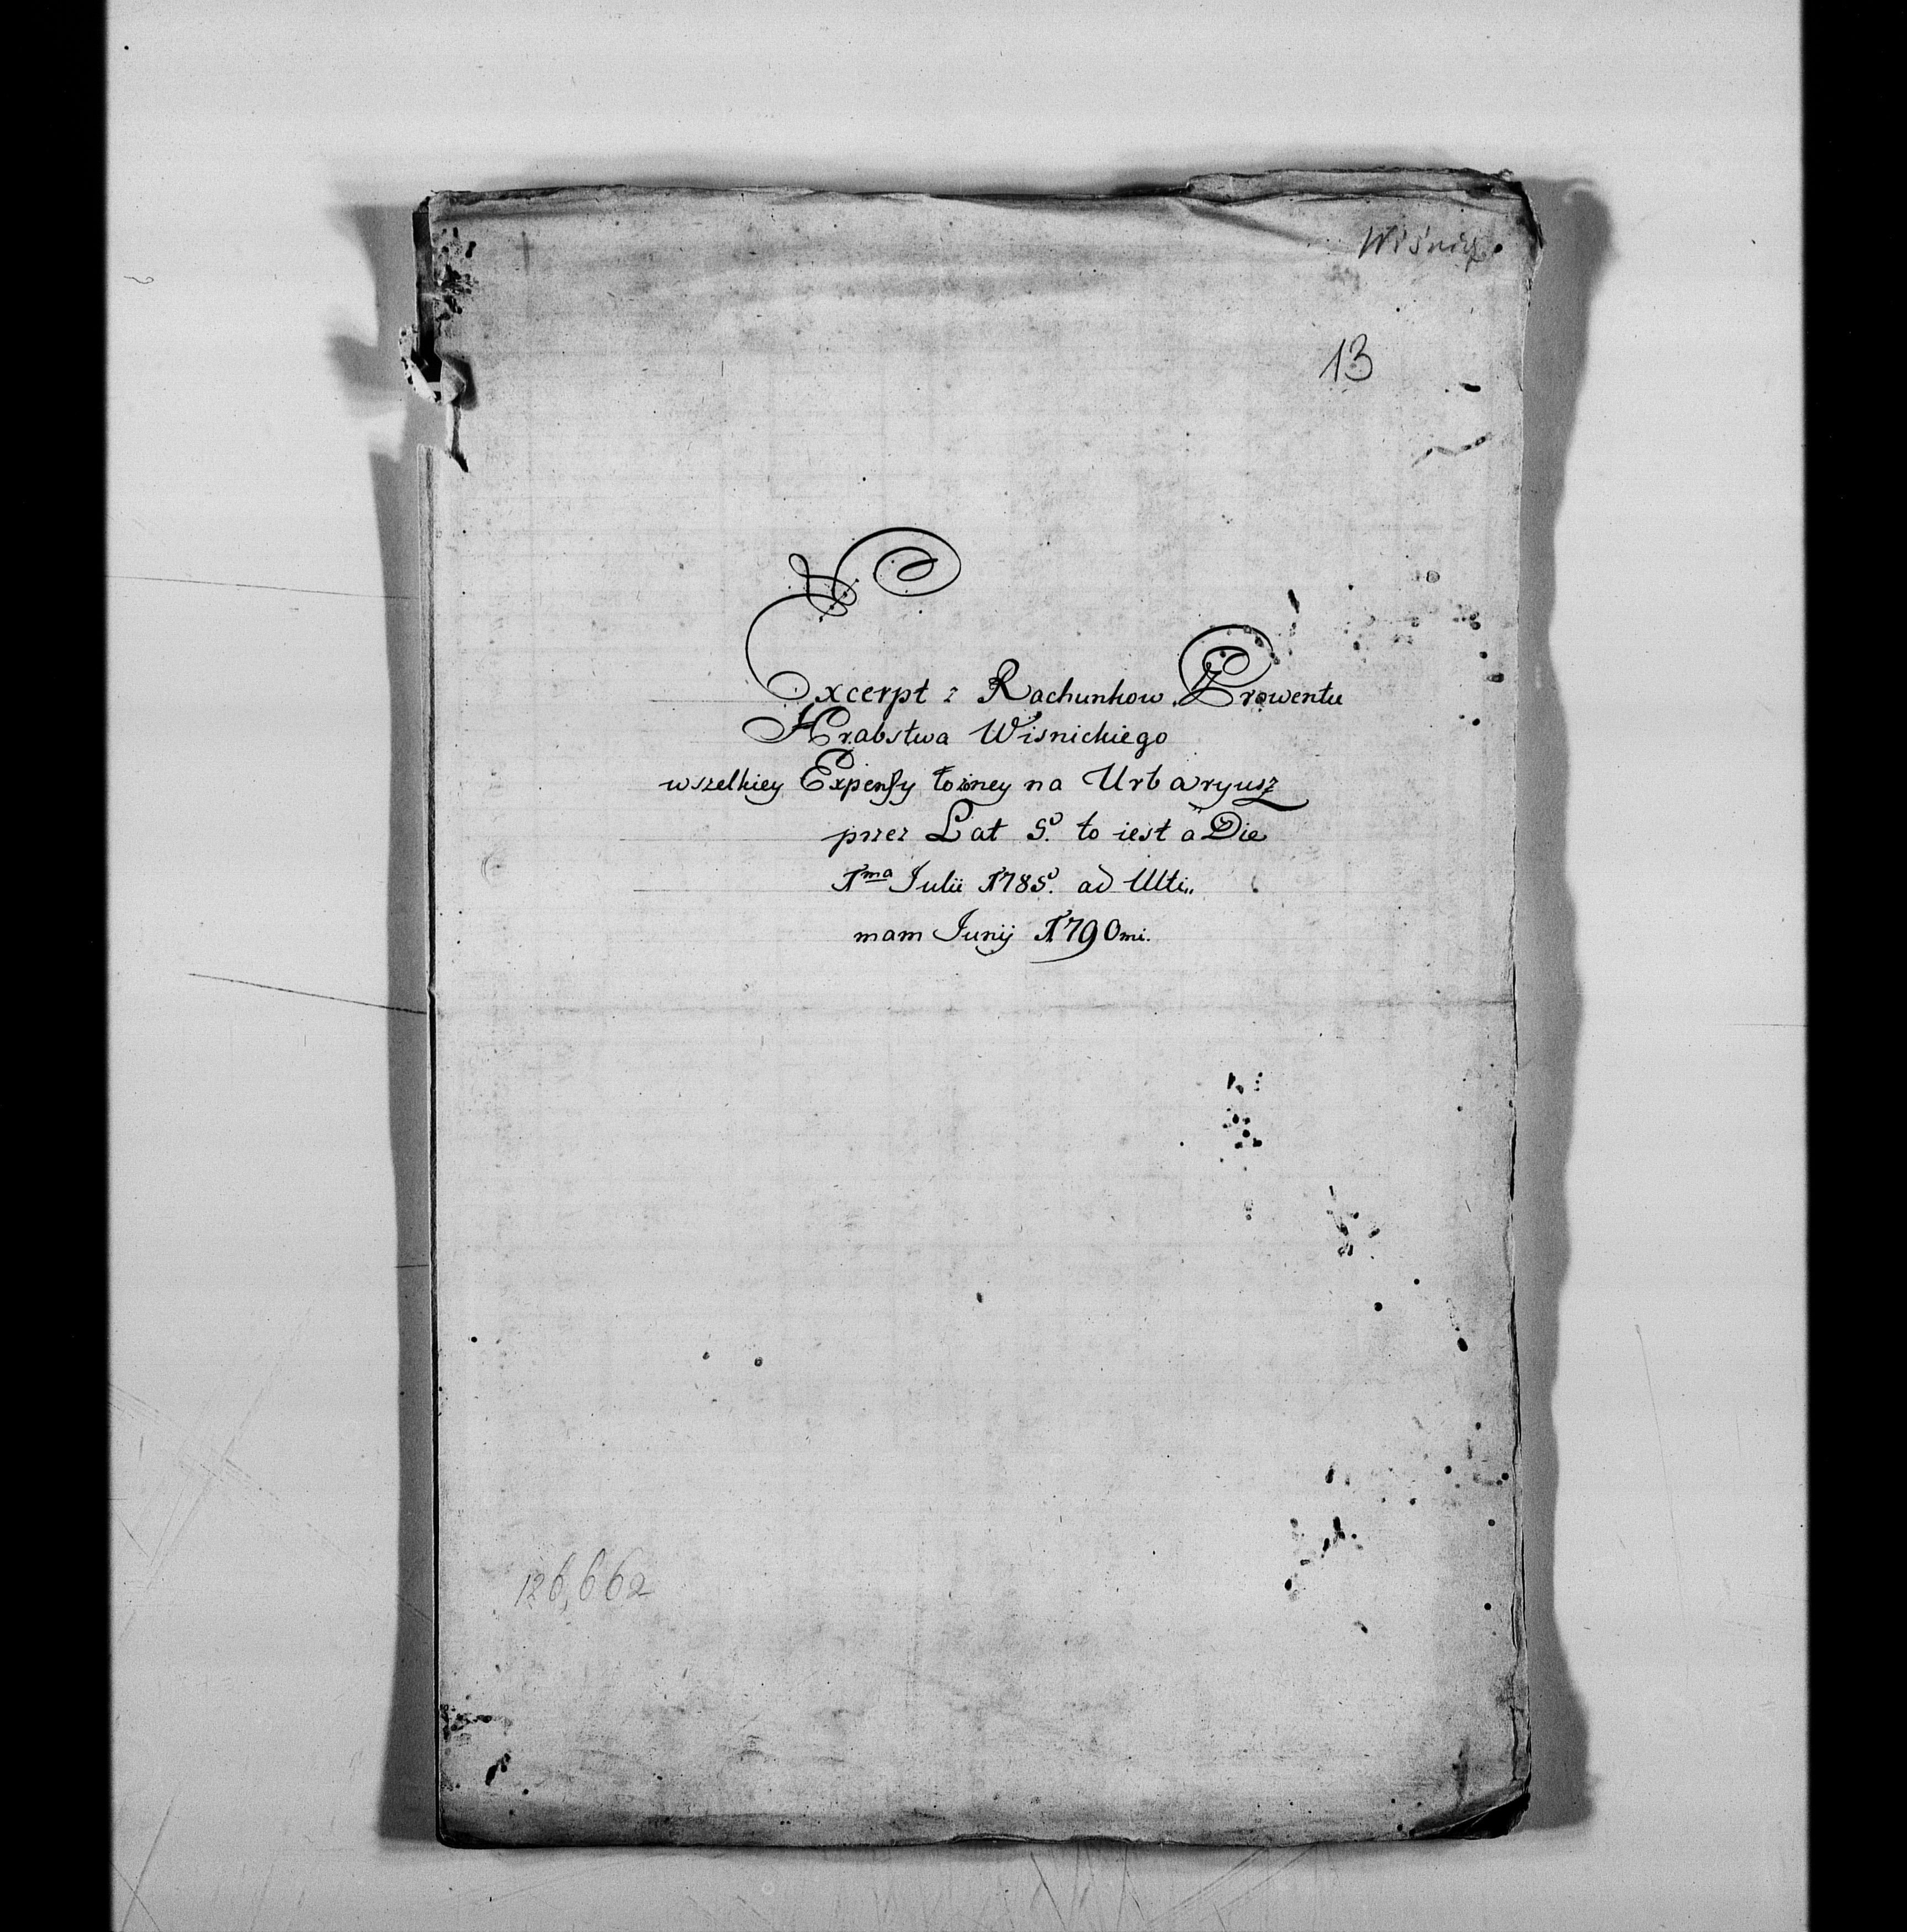 Wiśnicz
13
Excerpt z Rachunkow Prowentu
Hrabstwa Wisnickiego
wszelkiey Expensy łożney na Urbaryusz
przez Lat 5. to iest a Die
1ma Julii 1785. ad Ulti„
mam Junij 1790mi.
126,662